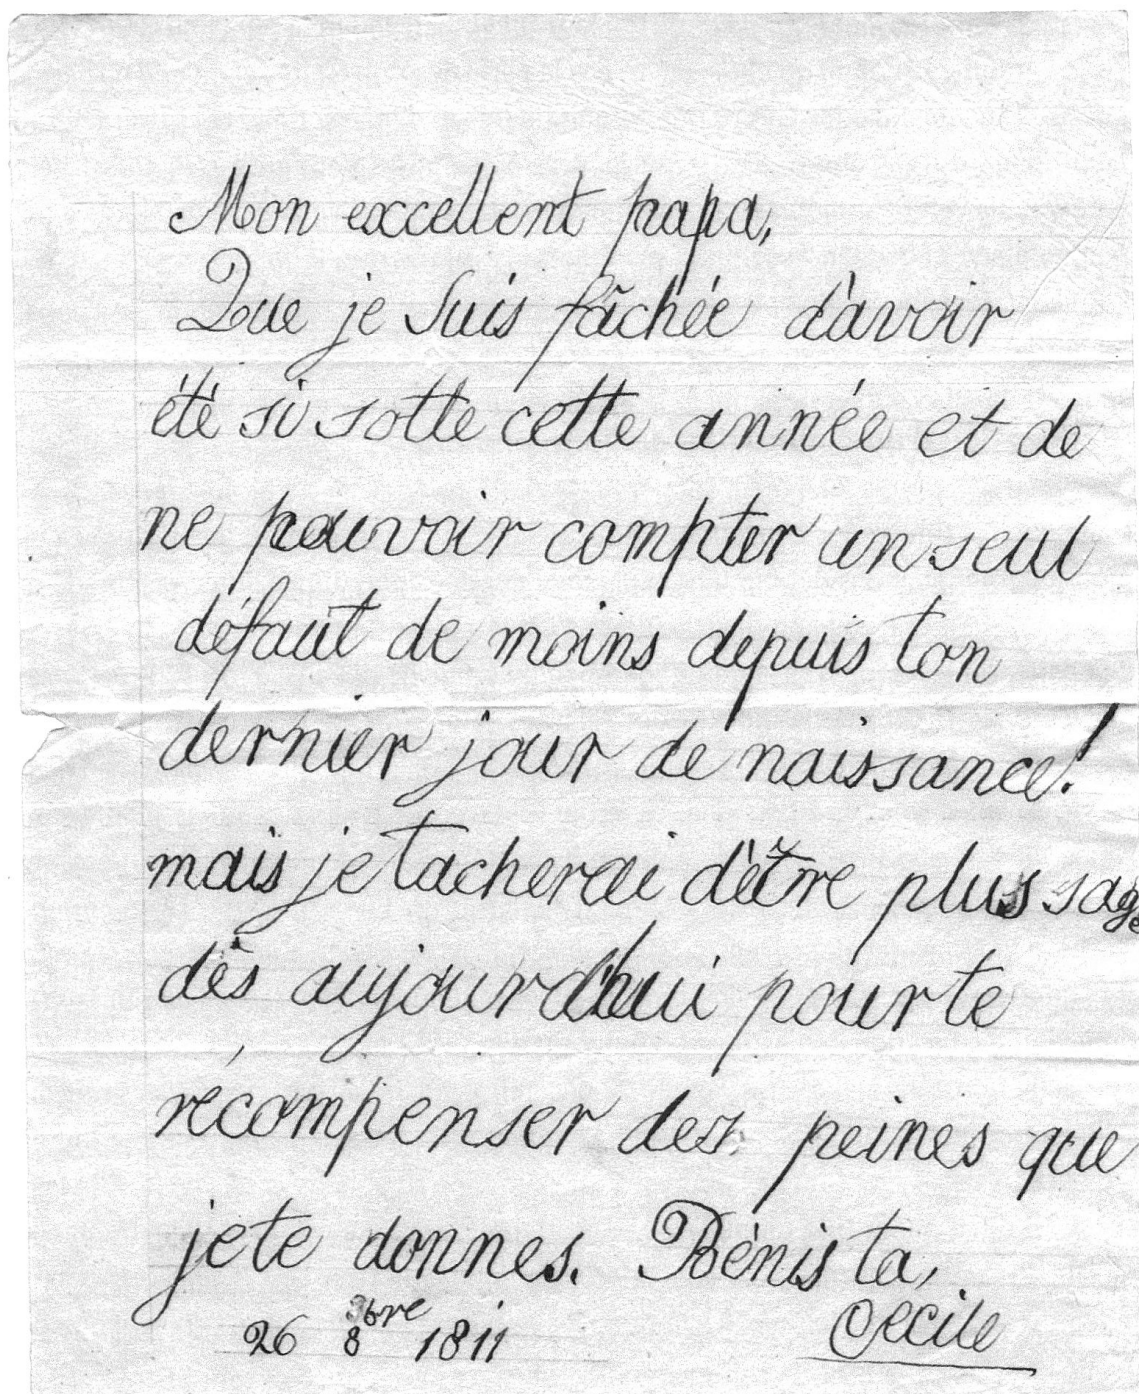 Mon excellent papa,
Que je suis fâchée d'avoir
été si sotte cette année et de
ne pouvoir compter un seul
défaut de moins depuis ton
dernier jour de naissance!
mais je tacherai d'être plus sage
dès aujourd'hui pour te
récompenser des peines que
je te donnes. Bénis ta,
26 8bre 1811 Cecile